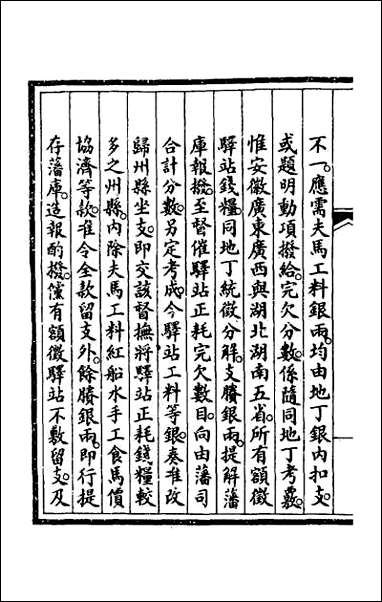 不一。應需夫馬工料銀兩。均由地丁銀內扣支。
或題明動項撥給。完欠分數。係隨同地丁考覈。
惟安徽廣東廣西與湖北湖南五省。所有額徵
驛站錢糧。同地丁統徵分解。支賸銀兩。提解藩
庫報撥。至督催驛站正耗完欠數目。向由藩司
合計分數。另定考成。今驛站工料等銀。奏准改
歸州縣坐支。即交該督撫將驛站正耗錢糧較
多之州縣。內除夫馬工料紅船水手工食馬價
協濟等款。准令全款留支外。餘賸銀兩。即行提
存藩庫。造報酌撥。儻有額徵驛站不敷留支。及